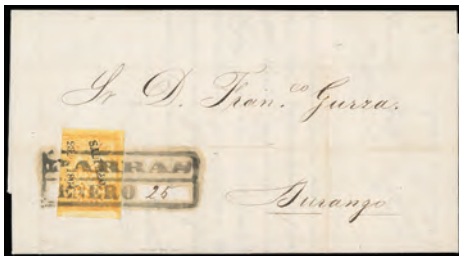 Sr D. Fran.co Gurza.
PARRAS
ENERO 25
Durango